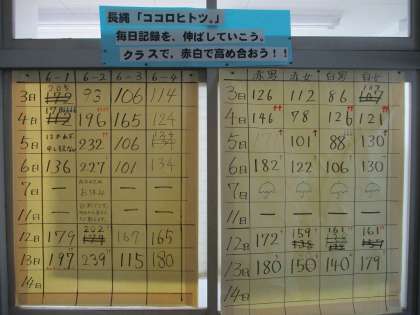 長縄「ココロヒトツ。」
毎日記録を、伸ばしていこう。
クラスで、赤白で高め合おう！！
6-1 6-2 6-3 6-4
3日 93 106 114
4日 196 165 124
5日 232 106
6日 136 227 101 134
7日 ー ー ー
11日 ー ー ー
12日 179 167 165
13日 197 239 115 180
14日
赤男 赤女 白男 白女
3日 126 112 86
4日 146 78 126 121
5日 101 88 130
6日 182 122 106 130
7日
11日 ー ー ー ー
12日 172 159 161 161
13日 180 150 140 179
14日